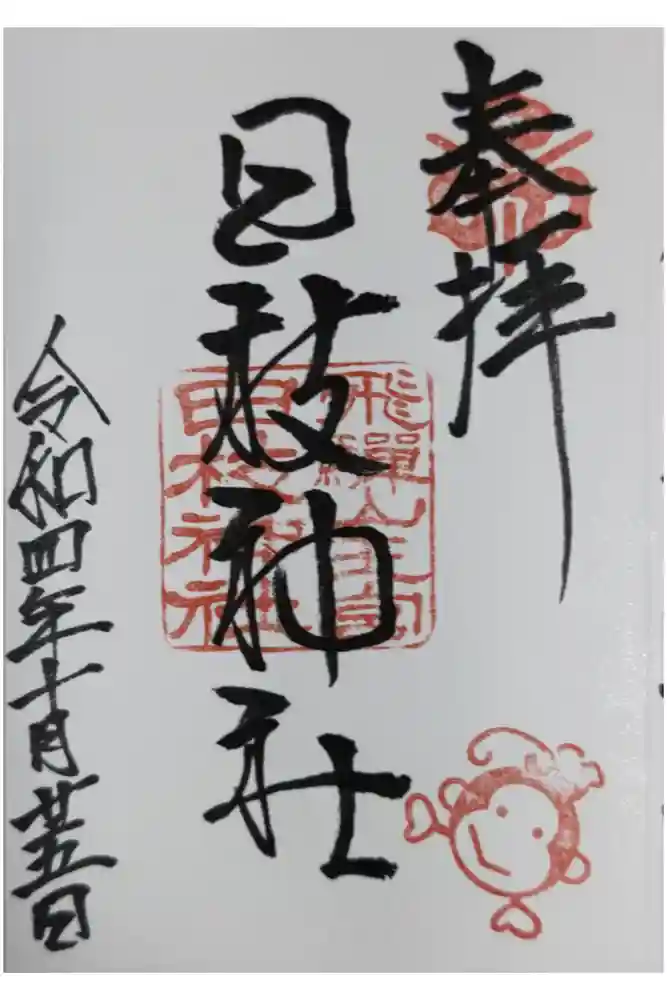 奉拝
飛騨山王宮
日枝神社
日枝神社
令和四年十月廿五日